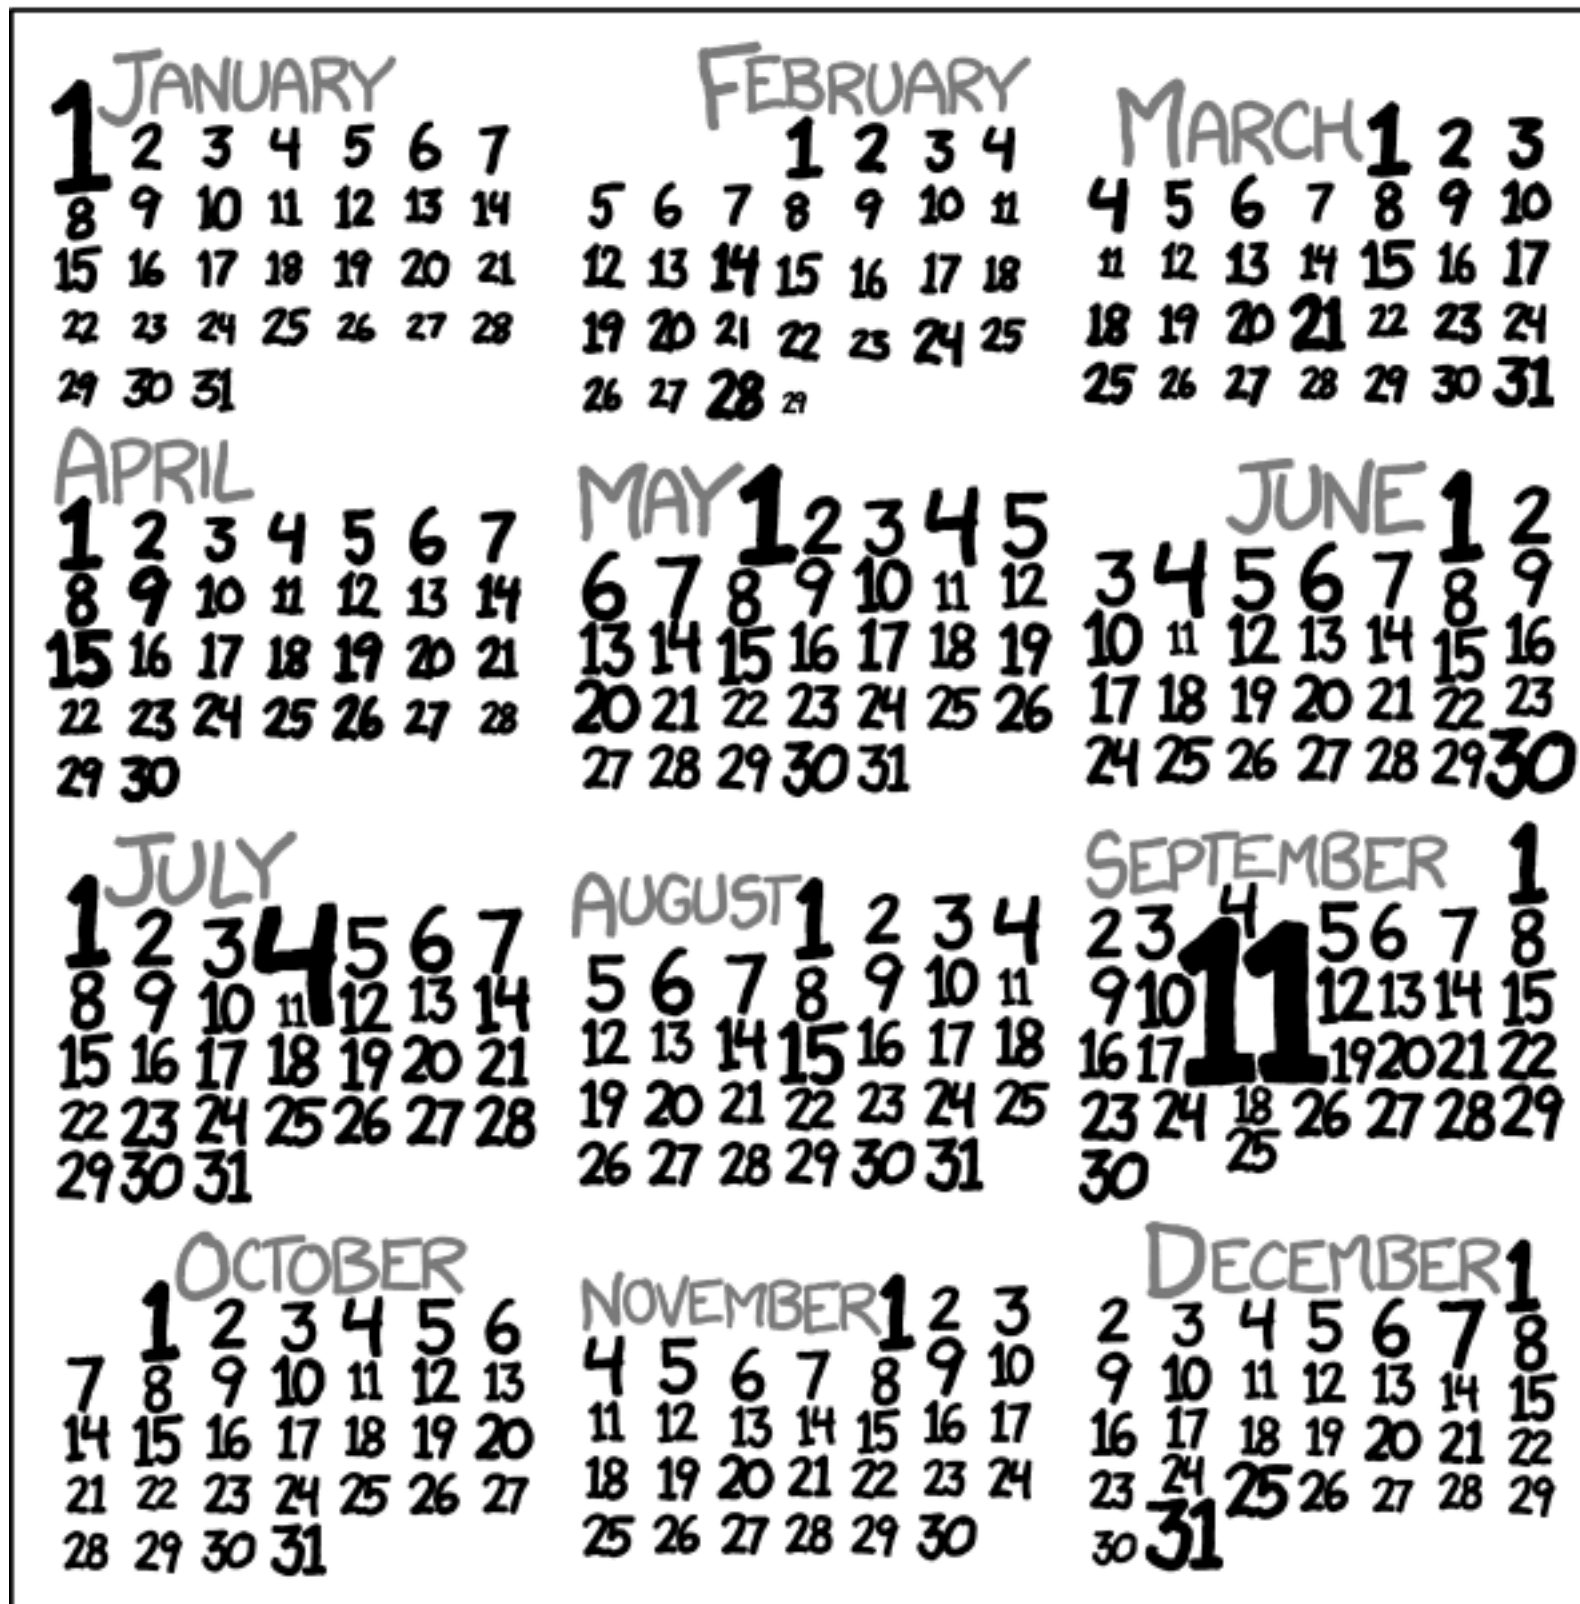 JANUARY
1 2 3 4 5 6 7
8 9 10 11 12 13 14
15 16 17 18 19 20 21
22 23 24 25 26 27 28
29 30 31
FEBRUARY
1 2 3 4
5 6 7 8 9 10 11
12 13 14 15 16 17 18
19 20 21 22 23 24 25
26 27 28 29
MARCH
1 2 3
4 5 6 7 8 9 10
11 12 13 14 15 16 17
18 19 20 21 22 23 24
25 26 27 28 29 30 31
APRIL
1 2 3 4 5 6 7
8 9 10 11 12 13 14
15 16 17 18 19 20 21
22 23 24 25 26 27 28
29 30
MAY
1 2 3 4 5
6 7 8 9 10 11 12
13 14 15 16 17 18 19
20 21 22 23 24 25 26
27 28 29 30 31
JUNE
1 2
3 4 5 6 7 8 9
10 11 12 13 14 15 16
17 18 19 20 21 22 23
24 25 26 27 28 29 30
JULY
1 2 3 4 5 6 7
8 9 10 11 12 13 14
15 16 17 18 19 20 21
22 23 24 25 26 27 28
29 30 31
AUGUST
1 2 3 4
5 6 7 8 9 10 11
12 13 14 15 16 17 18
19 20 21 22 23 24 25
26 27 28 29 30 31
SEPTEMBER
1
2 3 4 5 6 7 8
9 10 11 12 13 14 15
16 17 18 19 20 21 22
23 24 25 26 27 28 29
30
OCTOBER
1 2 3 4 5 6
7 8 9 10 11 12 13
14 15 16 17 18 19 20
21 22 23 24 25 26 27
28 29 30 31
NOVEMBER
1 2 3
4 5 6 7 8 9 10
11 12 13 14 15 16 17
18 19 20 21 22 23 24
25 26 27 28 29 30
DECEMBER
1
2 3 4 5 6 7 8
9 10 11 12 13 14 15
16 17 18 19 20 21 22
23 24 25 26 27 28 29
30 31